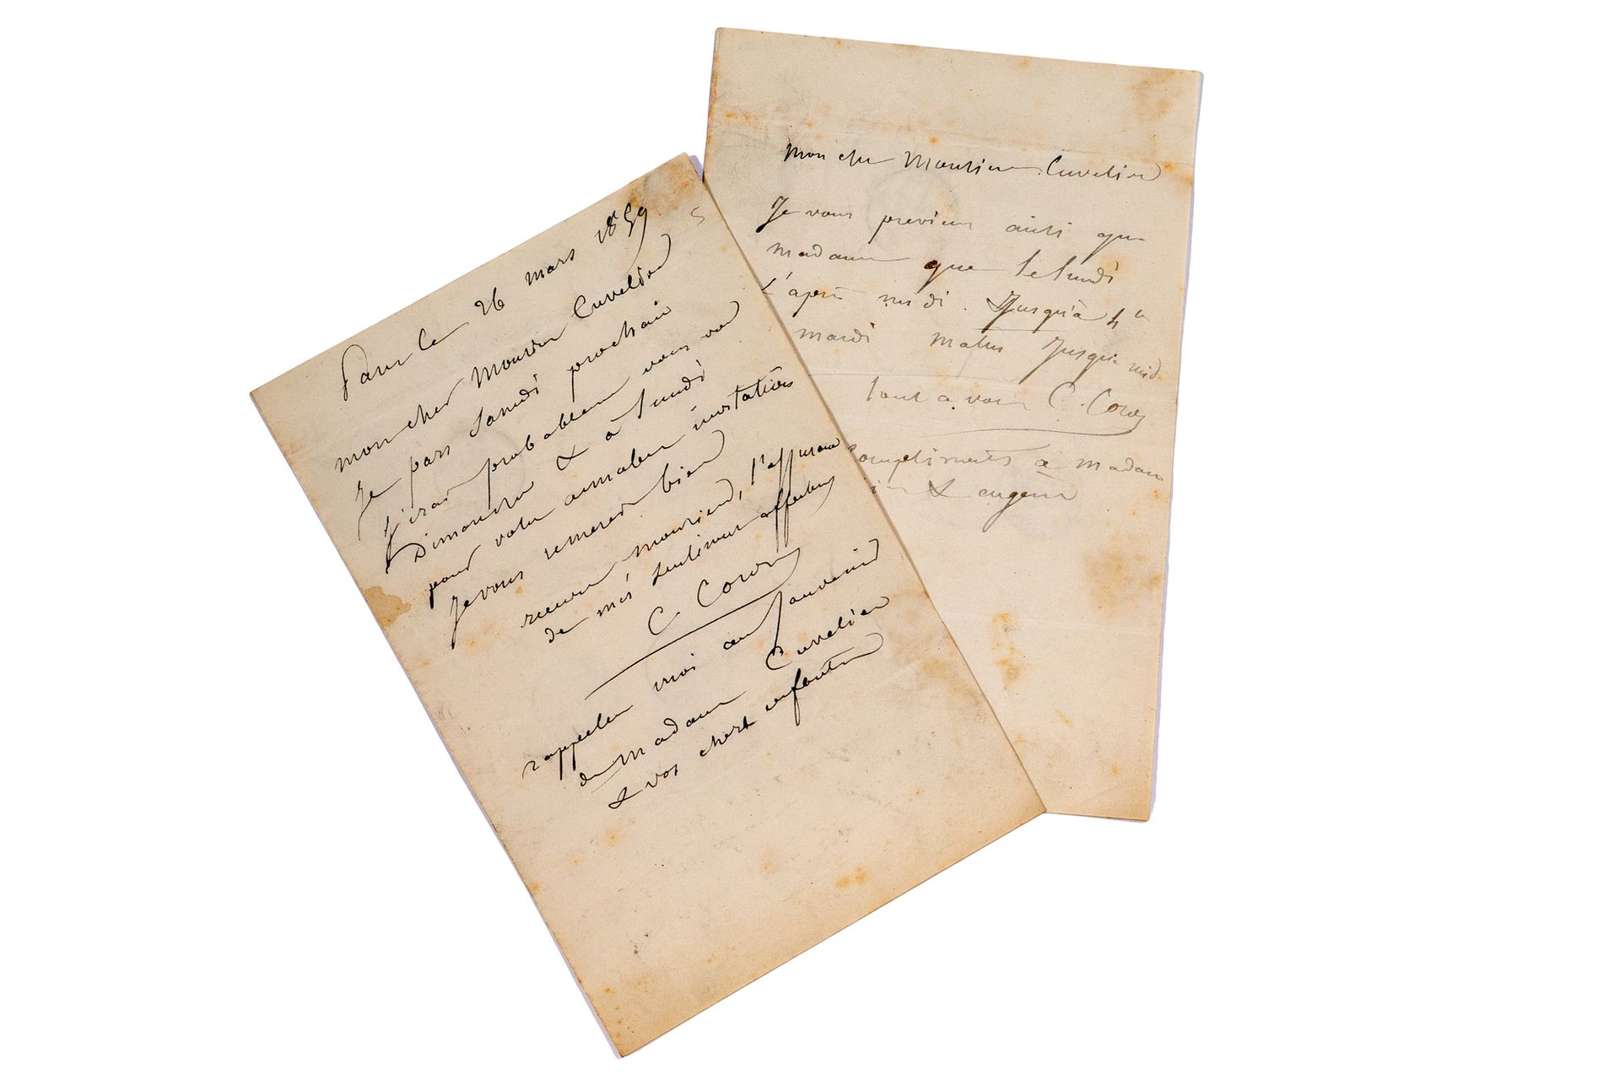 Paris ce 26 mars 1859
mon cher Monsieur Cuvelier
Je pars Samedi prochain
J'irai probablement vous voir
Dimanche & à lundi
pour votre aimable invitation
Je vous remercie bien
recevez monsieur, l'assurance
de mes sentimens affectueux
C. Corot
rappelez moi au Souvenir
de madame Cuvelier
& vos chers enfants
mon cher Monsieur Cuvelier
Je vous previens ainsi que
madame que le lundi
l'après midi. Jusqu'à 4h
mardi matin Jusqu'à mid
tout à vous C. Corot
compliments à madam
& eugene